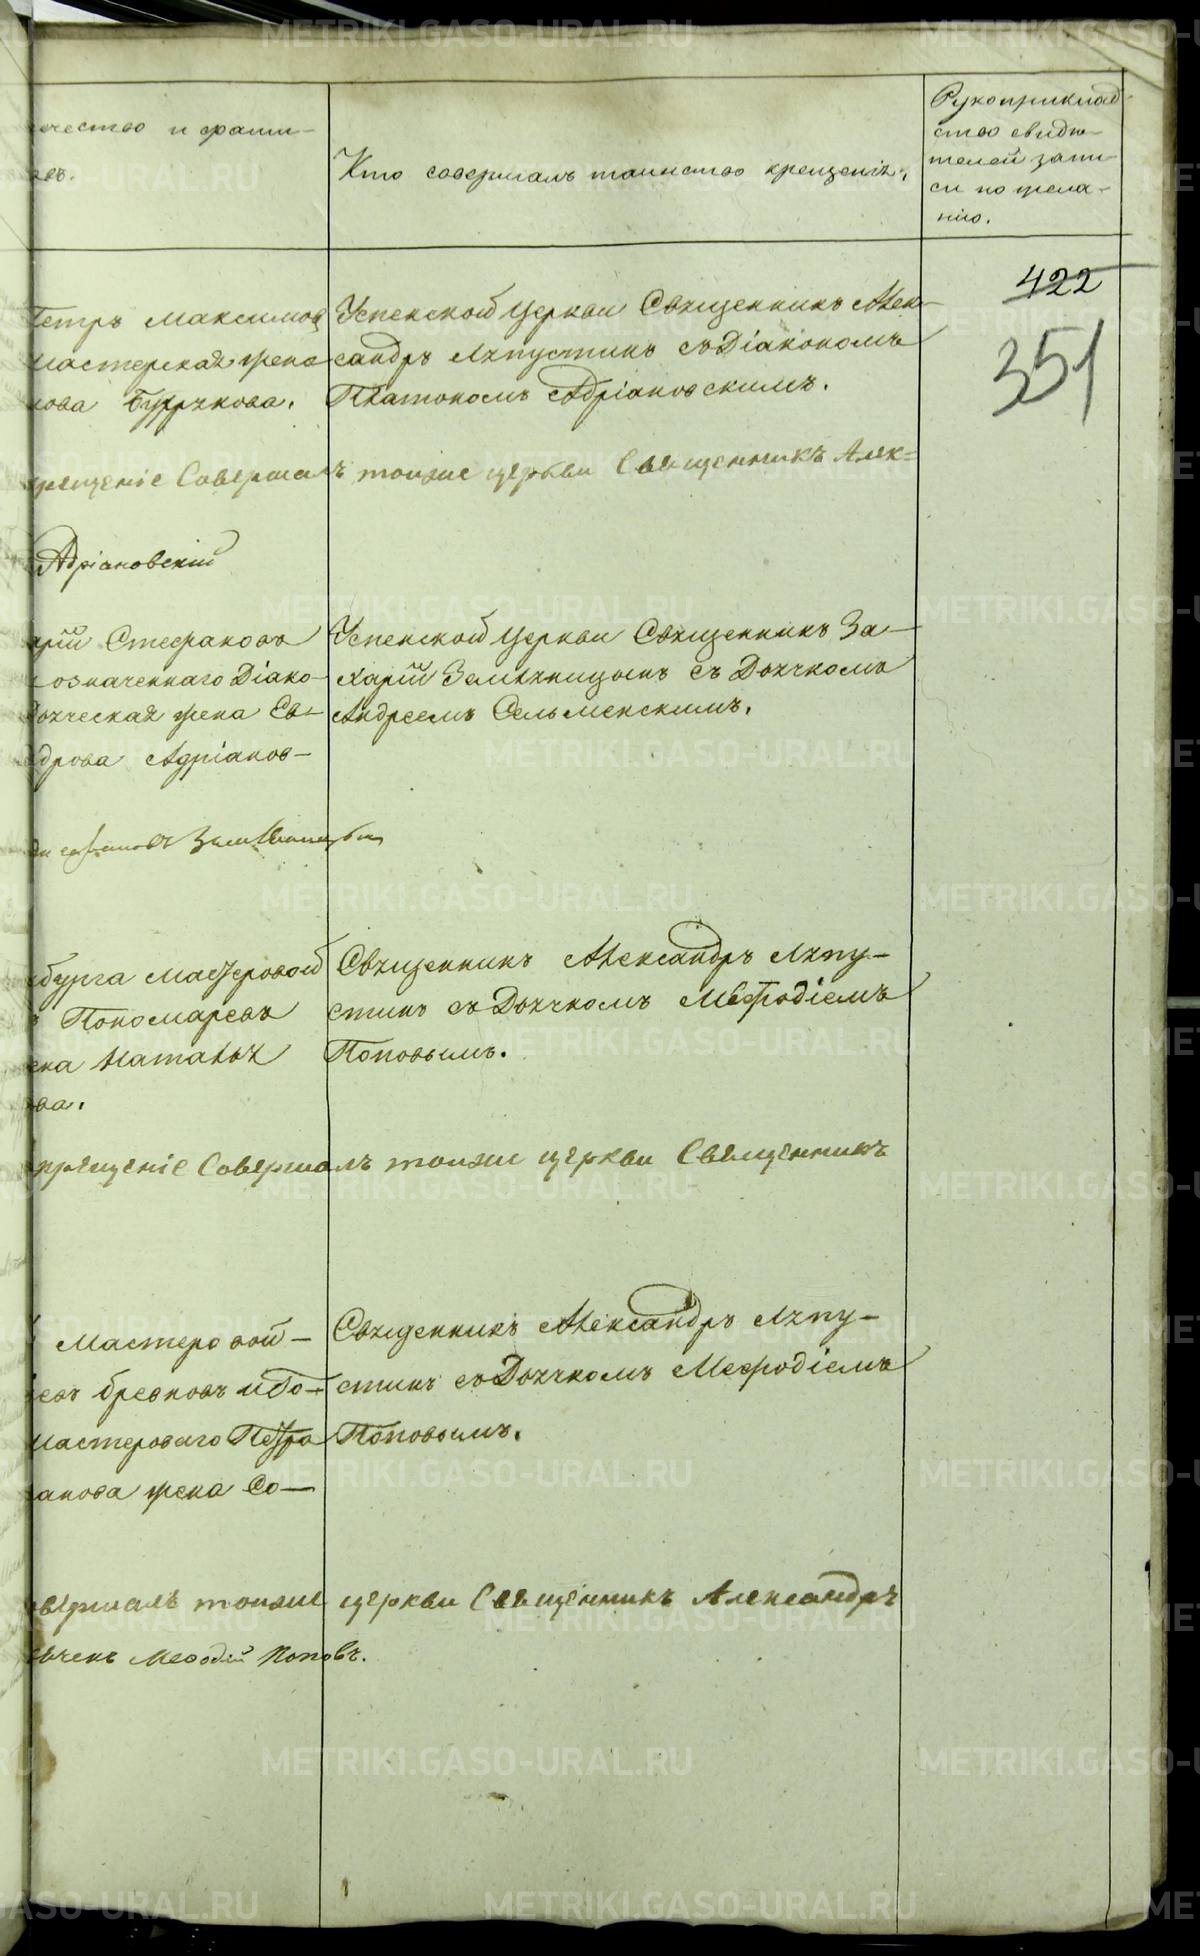 чество и фами-
евъ.
Кто совершалъ таинство крещенія.
Рукоприклад-
ство свидѣ-
телей запи-
си по жела-
нію.
422
351
Петръ Максимов
мастерская жена
нова
Успенской Церкви Священникъ Алек-
сандръ Ляпустинъ съ Діакономъ
Платономъ Адріановскимъ.
крещеніе Совершалъ тоиже церкви Священникъ Алек=
Адріановскій
арій Стефановъ
означеннаго Діако-
ческая жена Ев-
дрова Адріанов-
Успенской Церкви Священникъ За-
харій Земляницынъ съ Дьячкомъ
Андреемъ Сельменскимъ.
Земляницынъ
бурга Мастеровой
Пономаревъ
ена Наталья
ова.
Священникъ Александръ Ляпу-
стинъ съ Дьячкомъ Меѳодіемъ
Поповымъ.
крещеніе Совершалъ тоиже церкви Священникъ
Мастеровой-
евъ Бревновъ и До-
мастероваго Петра
анова жена Со-
Священникъ Александръ Ляпу-
стинъ съ Дьячкомъ Мефодіемъ
Поповымъ.
овершалъ тоиже церкви Священникъ Александръ
ячекъ Меѳодій Поповъ.
METRIKI.GASO-URAL.RU